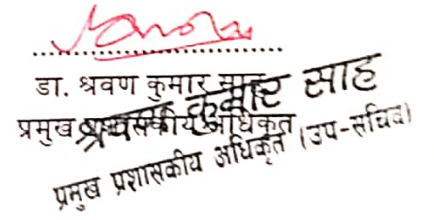 डा. श्रवण कुमार साह
प्रमुख प्रशासकीय अधिकृत
श्रवण कुमार साह
प्रमुख प्रशासकीय अधिकृत (उप-सचिव)